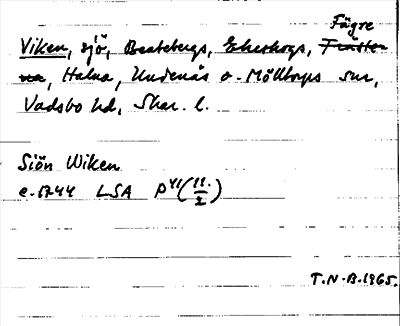 Fägre
Viken, sjö, Beatebergs, Ekeskogs, Fräste-
na, Halna, Undenäs o. Mölltorps snr,
Vadsbo hd, Skar. l.
Siön Wiken
c. 1744 LSA P 41 (11/2)
T.N-B. 1965.